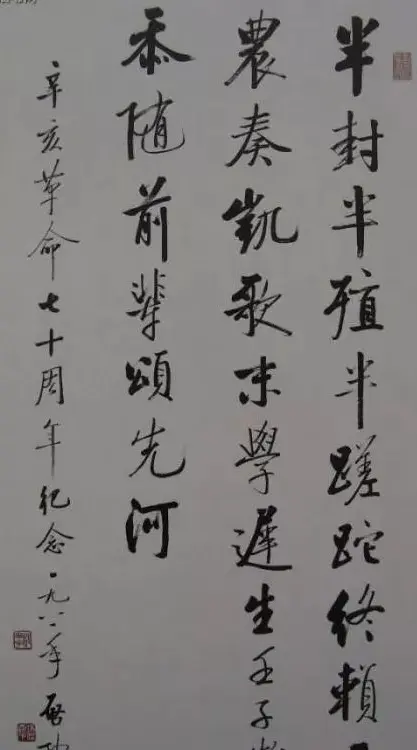 半封半殖半蹉跎終賴
農奏凱歌末學遲生壬子
忝隨前輩頌先河
辛亥革命七十周年紀念一九八一年啟功